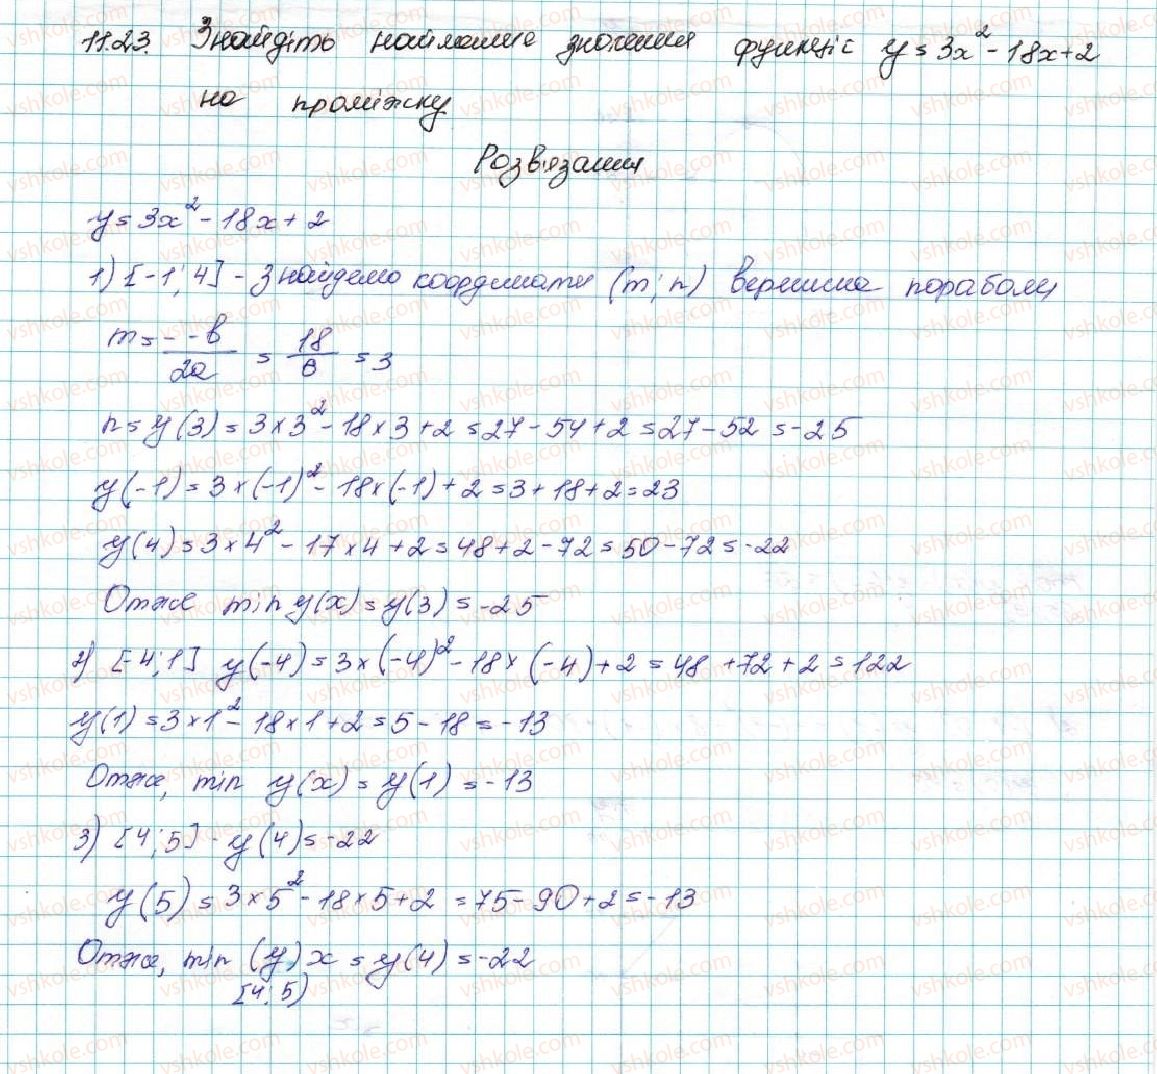 11.23. Знайдіть найменше значення функціє y = 3x² - 18x + 2
на проміжку
Розв'язання
y = 3x² - 18x + 2
1) [-1; 4] - Знайдемо координати (m; n) вершина параболи
m = - -b / 2a = 18 / 6 = 3
n = y(3) = 3 × 3² - 18 × 3 + 2 = 27 - 54 + 2 = 27 - 52 = -25
y(-1) = 3 × (-1)² - 18 × (-1) + 2 = 3 + 18 + 2 = 23
y(4) = 3 × 4² - 17 × 4 + 2 = 48 + 2 - 72 = 50 - 72 = -22
Отже min y(x) = y(3) = -25
2) [-4; 1] y(-4) = 3 × (-4)² - 18 × (-4) + 2 = 48 + 72 + 2 = 122
y(1) = 3 × 1² - 18 × 1 + 2 = 5 - 18 = -13
Отже, min y(x) = y(1) = -13
3) [4; 5] - y(4) = -22
y(5) = 3 × 5² - 18 × 5 + 2 = 75 - 90 + 2 = -13
Отже, min (y) x = y(4) = -22
[4; 5)